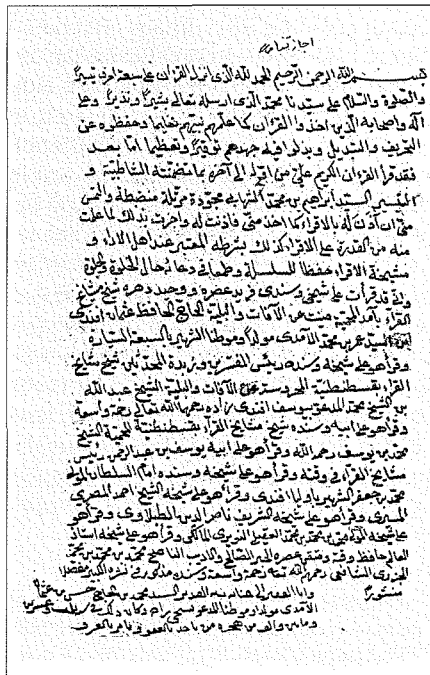 بسم الله الرحمن الرحيم الحمد لله الذى انزل القرآن على سبعة احرف تيسيرًا
والصلوة والسلام على سيدنا محمد الذى ارسله تعالى بشيرًا ونذيرًا وعلى
آله واصحابه الذين اخذوا القرءان كما علمهم نبيهم تعليما وحفظوه عن
التحريف والتبديل وبذلوا فيه جهدهم توقيرًا وتعظيما اما بعد
فقد قرأ القرءان الكريم على من اوله الى آخره بما تضمنته الشاطبية و
التيسير السيد ابراهيم بن محمد مجودة مرتلة منضبطة والتمس
منى ان آذن له بالاقراء كما اخذ منى فاذنت له واجزت بذلك لما علمت
منه من القدرة على الاقراء كذلك بشرطه المعتبر عند اهل الاداء و
مشيخة الاقراء حفظا للسلسلة وطمعا فى دعائه حال الخلوة والجلوة
ولقد قرأت على شيخى وسندى فريد عصره ووحيد دهره شيخ مشايخ
القراء بآمد المحمية صينت عن الآفات والبلية الحاج الحافظ عثمان افندى
السيد عمر بن محمد الآمدى مولدًا وموطنا الشهير بالسبعة السيارة
وقرأ هو على شيخه وسنده رئيس المفسرين وزبدة المحدثين شيخ مشايخ
القراء بقسطنطنية المحروسة عن الآفات والبلية الشيخ عبد الله
بن الشيخ محمد المدعو بيوسف افندى زاده رحمهما الله تعالى رحمة واسعة
وقرأ هو على ابيه وسنده شيخ مشايخ القراء بقسطنطنية المحمية الشيخ
محمد بن يوسف رحمه الله وقرأ هو على ابيه يوسف بن عبد الرحمن رئيس
مشايخ القراء فى وقته وقرأ هو على شيخه وسنده امام السلطان
محمد بن جعفر الشهير باوليا افندى وقرأ هو على شيخه الشيخ احمد المصرى
المسيرى وقرأ هو على شيخه الشريف ناصر الدين الطبلاوى وقرأ هو
على شيخه بن محمد بن محمد العقيلى النويرى المالكى وقرأ هو على شيخه استاذ
العالم حافظ وقته عصره محمد بن محمد بن محمد
الجزرى الشافعى رحمه الله تعالى رحمة واسعة وسنده مذكور فى نشره الكبير مفصلا
وانا الفقير السيد محمد بن
الآمدى مولدًا وموطنا